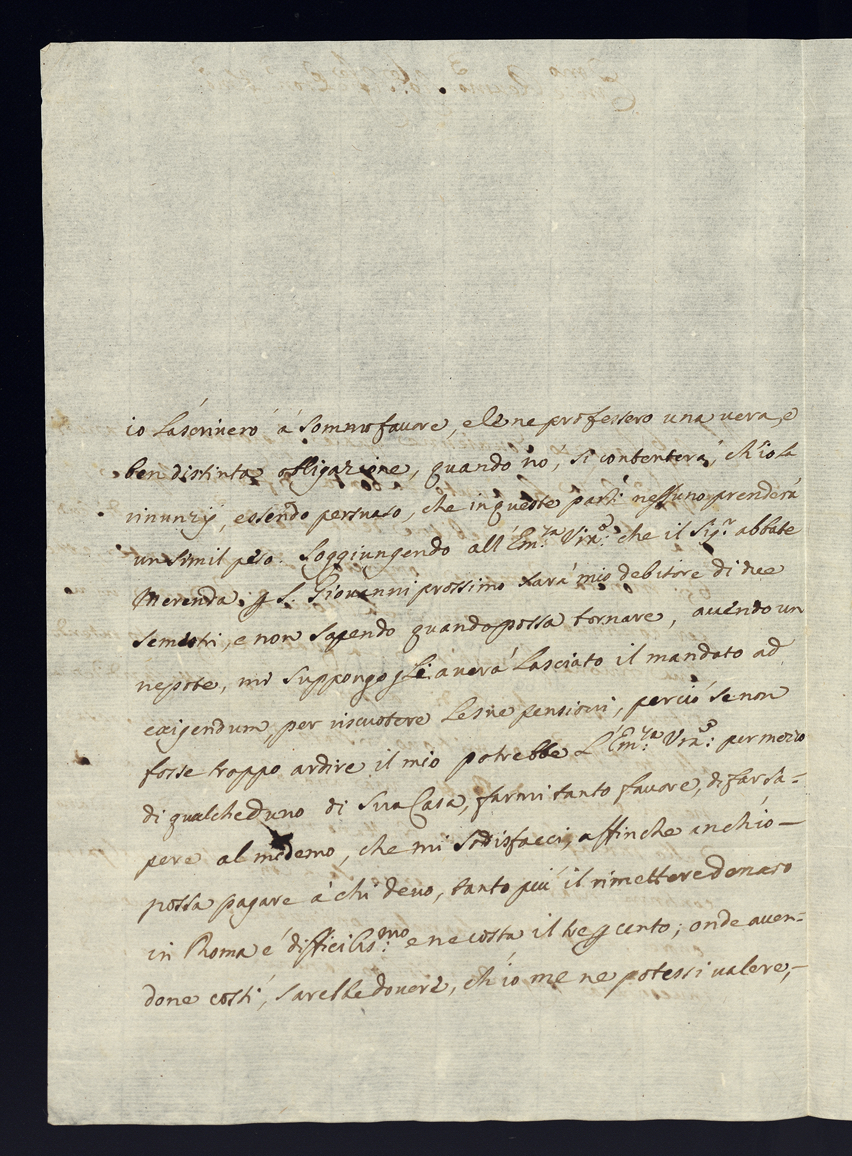 io l'ascriverò á sommo favore, e le ne professero una vera, e
ben distinta obligazione, quando nò, si contenterà, ch'io la
rinunzij, essendo persuaso, che in queste parti nessuno prenderà
un simil peso. Soggiungendo all'Em.za V'ra: che il Sig.r abbate
Merenda, p S. Giovanni prossimo sarà mio debitore di tre
semestri, e non sapendo quando possa tornare, avendo un
nepote, mi suppongo gli averà lasciato il mandato ad
exigendum, per riscuotere le sue pensioni, perciò se non
fosse troppo ardire il mio potrebbe l'Em.za V'ra: per mezzo
di qualcheduno di sua Casa, farmi tanto favore, di far sa-
pere al medemo, che mi sodisfacci, affinche anch'io
possa pagare à chi devo, tanto più il rimettere denaro
in Roma è difficilis.mo e ne costa il tre p cento; onde aven-
done costì, sarebbe dovere, ch'io me ne potessi valere,